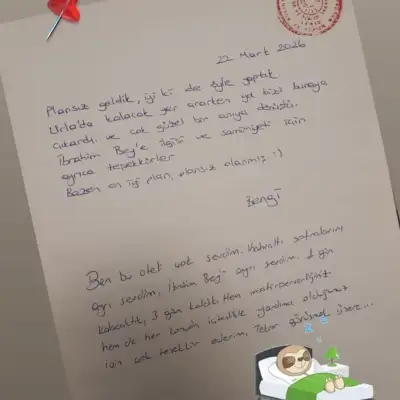 22 Mart 2026
Plansız geldik, iyi ki de öyle yaptık
Urla'da kalacak yer ararken yol bizi buraya
çıkardı. ve çok güzel bir anıya dönüştü.
İbrahim Bey'e ilgisi ve samimiyeti için
ayrıca teşekkürler
Bazen en iyi plan, plansız olanmış :)
Bengi
Ben bu otel çok sevdim. Kahvaltı sofralarını
ayrı sevdim, İbrahim Bey'i ayrı sevdim. 1 gün
kalacaktık, 3 gün kaldık. Hem misafirperverliğiniz
hem de her konuda yardımcı olduğunuz
için çok teşekkür ederim, Tekrar görüşmek üzere...